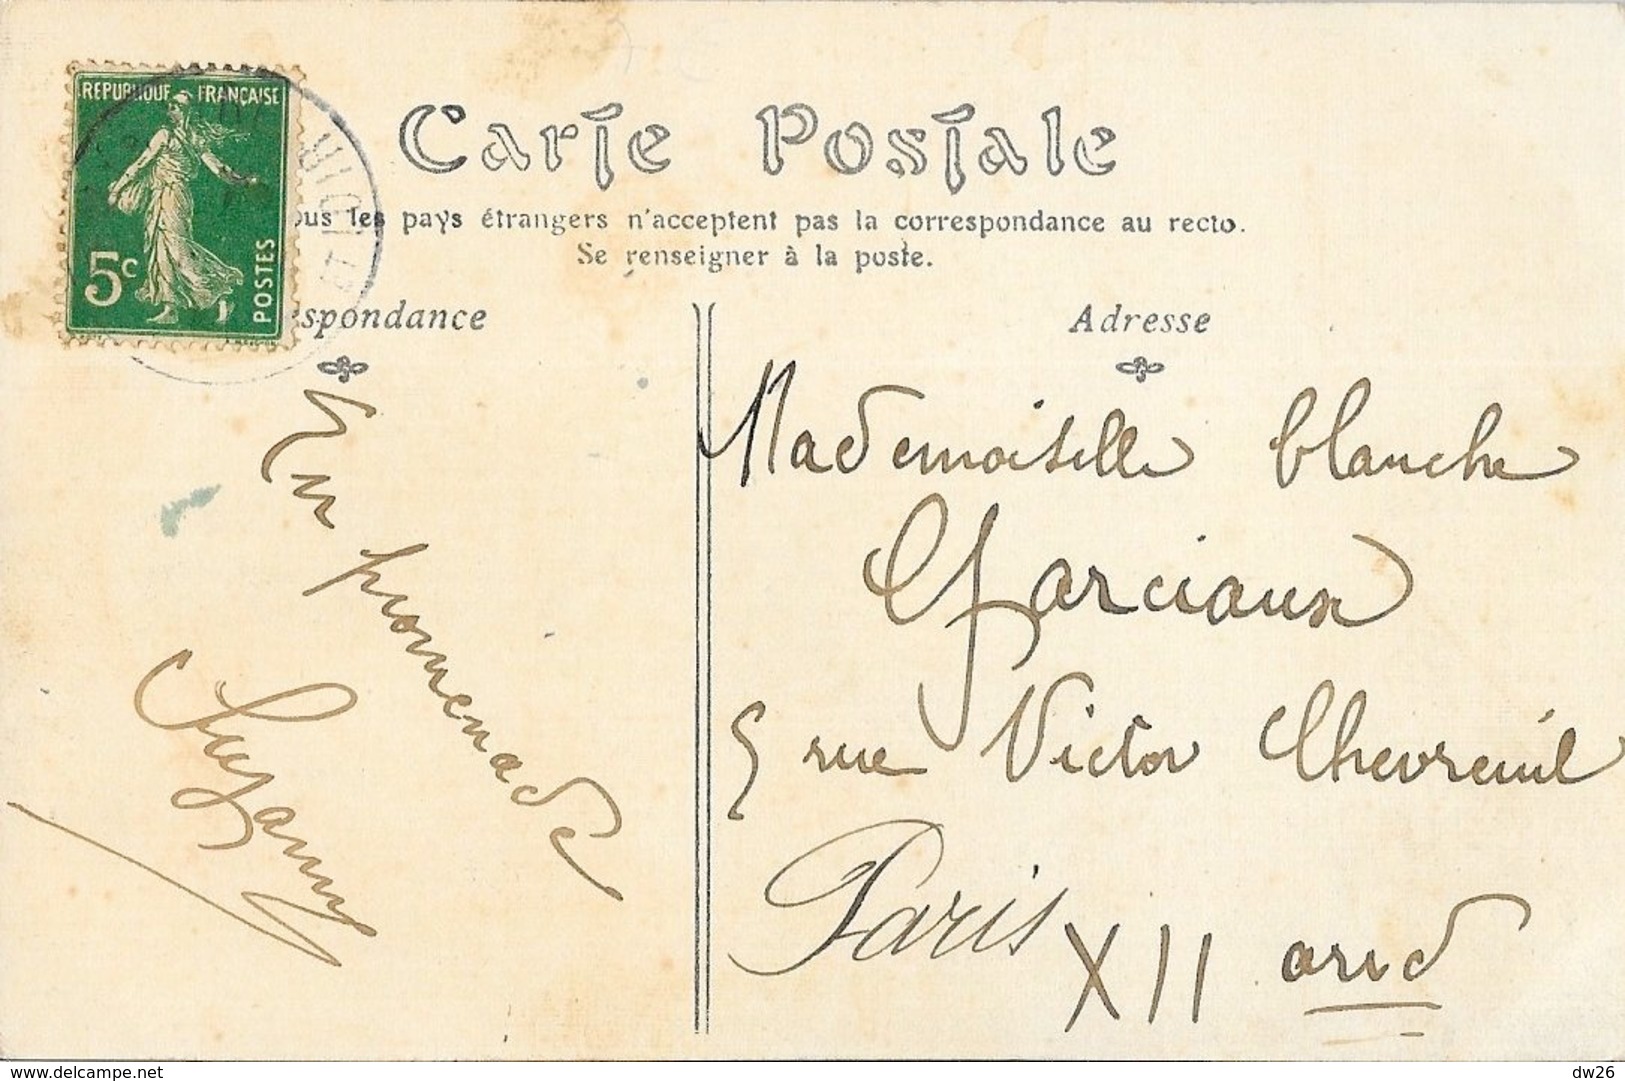 REPUBLIQUE FRANÇAISE
5c
POSTES
Carte Postale
ous les pays étrangers n'acceptent pas la correspondance au recto.
Se renseigner à la poste.
espondance
En promenade
Suzanne
Adresse
Mademoiselle blanche
Garciaux
5 rue Victor Chevreuil
Paris XII arrd
delcampe.net
dw26